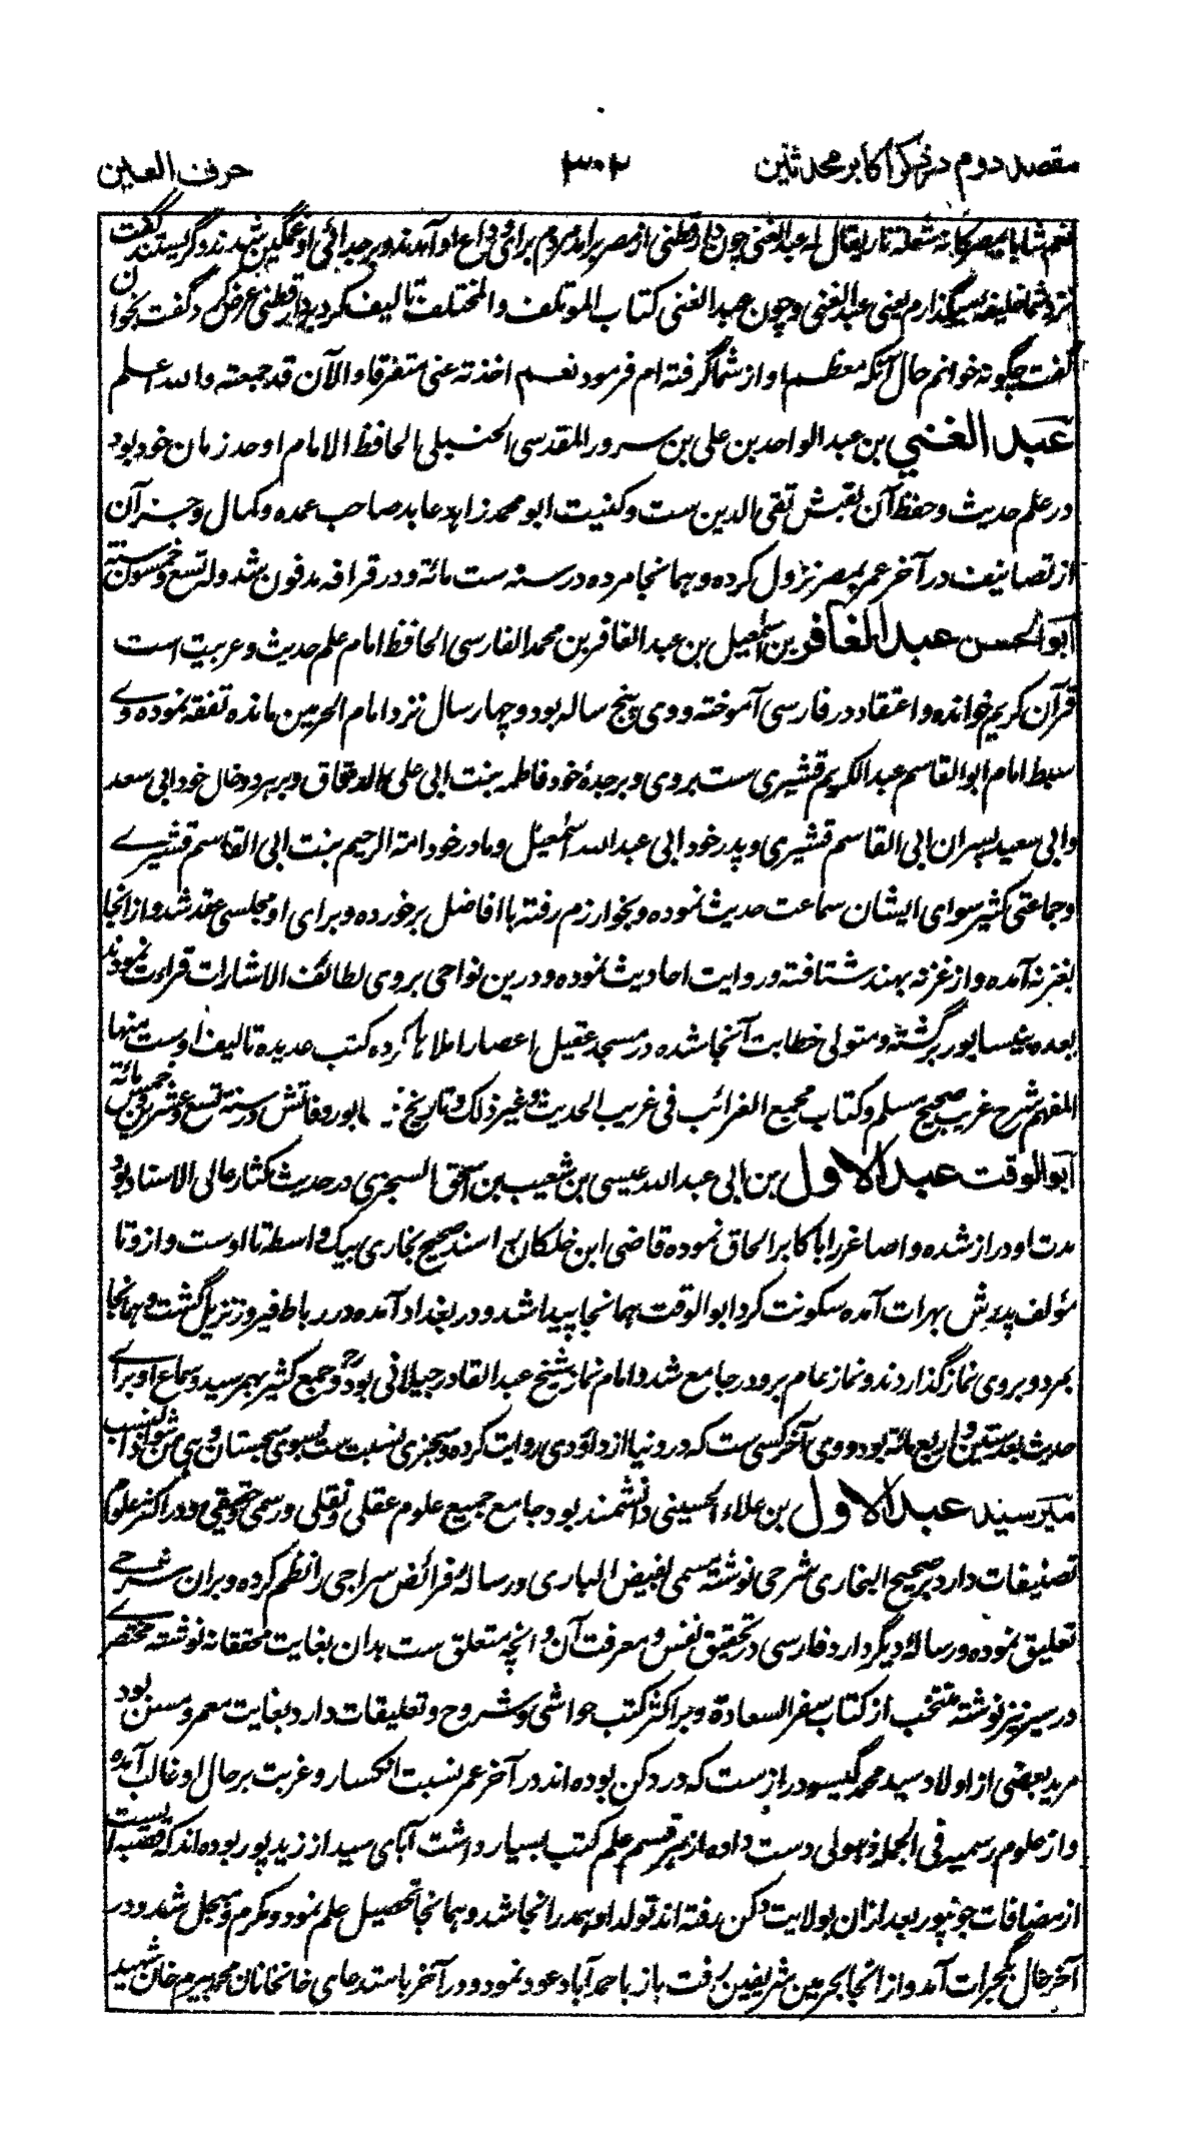 مقصد دوم در ذکر اکابر محدثین ۳۰۲ حرف العین
نعم شابا بمصر کانه شعلة نار یقال له عبد الغنی چون دارقطنی از مصر برآمد مردم برای وداع او آمدند و بر جدائی او غمگین شدند و گریستند گفت
نزد شما خلیفه میگذارم یعنی عبد الغنی و چون عبد الغنی کتاب الموتلف والمختلف تالیف کرد بر دارقطنی عرض کرد گفت بخوان
گفت چگونه خوانم حال آنکه معظم او از شما گرفته ام فرمود نعم اخذته عنی متفرقا والآن قد جمعته والله اعلم
عبد الغنی بن عبد الواحد بن علی بن سرور المقدسی الحنبلی الحافظ الامام اوحد زمان خود بود
در علم حدیث و حفظ آن لقبش تقی الدین ست و کنیت ابو محمد زاهد عابد صاحب عمده و کمال و جز آن
از تصانیف در آخر عمر بمصر نزول کرده و همانجا مرده در سنه ست مائة و در قرافه مدفون شد وله تسع وخمسون سنة
ابو الحسن عبد الغافر بن اسمعیل بن عبد الغافر بن محمد الفارسی الحافظ امام علم حدیث و عربیت است
قرآن کریم خوانده و اعتقاد در فارسی آموخته و وی پنج ساله بود و چهار سال نزد امام الحرمین مانده تفقه نموده وی
سبط امام ابو القاسم عبد الکریم قشیری ست بر وی و بر جدهٔ خود فاطمه بنت ابی علی الدقاق و بر هر دو خال خود ابی سعد
وابی سعید پسران ابی القاسم قشیری و پدر خود ابی عبد الله اسمعیل و مادر خود امة الرحیم بنت ابی القاسم قشیری
و جماعتی کثیر سوای ایشان سماعت حدیث نموده و بخوارزم رفته با افاضل برخورده و برای او مجلسی عقد شد و از انجا
بغزنه آمده و از غزنه بهند شتافته و روایت احادیث نموده و درین نواحی بروی لطائف الاشارات قراءت نمودند
بعده بنیسابور برگشته و متولی خطابت آنجا شده در مسجد عقیل اعصار املاها کرده کتب عدیده تالیف اوست منها
المفهم شرح غریب صحیح مسلم و کتاب مجمع الغرائب فی غریب الحدیث و غیر ذلک و تاریخ وفاتش در سنة تسع وعشرین وخمس مائة
ابو الوقت عبد الاول بن ابی عبد الله عیسی بن شعیب بن اسحق السجزی در حدیث مکثار عالی الاسناد بود
مدت او دراز شده و اصاغر را با کابر الحاق نموده قاضی ابن خلکان را سند صحیح بخاری بیک واسطه تا اوست و از و تا
مؤلف پدرش بهرات آمده سکونت کرد ابو الوقت همانجا پیدا شد و در بغداد آمده در رباط فیروز نزیل گشت و همانجا
بمرد و بر وی نماز گذاردند و نماز عام برو در جامع شد و امام نماز شیخ عبد القادر جیلانی بود و جمع کثیر بهم رسید و سماع او برای
حدیث بعد ستین و اربع مائة بود و وی آخر کسی ست که در دنیا از داؤدی روایت کرده و سجزی نسبت ست بسوی سجستان و هی من شواذ النسب
میر سید عبد الاول بن علاء الحسینی دانشمند بود جامع جمیع علوم عقلی و نقلی و رسمی و حقیقی و در اکثر علوم
تصنیفات دارد بر صحیح البخاری شرحی نوشته مسمی بفیض الباری و رسالهٔ فرائض سراجی را نظم کرده و بران شرحی
تعلیق نموده و رساله دیگر دارد فارسی در تحقیق نفس و معرفت آن و آنچه متعلق ست بدان بغایت محققانه نوشته مختصری
در سیر نیز نوشته منتخب از کتاب سفر السعادة و بر اکثر کتب حواشی و شروح و تعلیقات دارد بغایت معمر و مسن بود
مرید بعضی از اولاد سید محمد گیسو دراز ست که در دکن بوده اند در آخر عمر نسبت انکسار و غربت بر حال او غالب آمده
و از علوم رسمیه فی الجمله ذهولی دست داده از هر قسم علم کتب بسیار داشت آبای سید از زید پور بوده اند که قصبه ایست
از مضافات جونپور بعد ازان بولایت دکن رفته اند تولد او همدر آنجا شد و همانجا تحصیل علم نمود و مکرم و مبجل شد و در
آخر حال بگجرات آمد و از انجا بحرمین شریفین رفت باز باحمد آباد عود نمود و در آخر باستدعای خانخانان محمد بیرم خان شهید